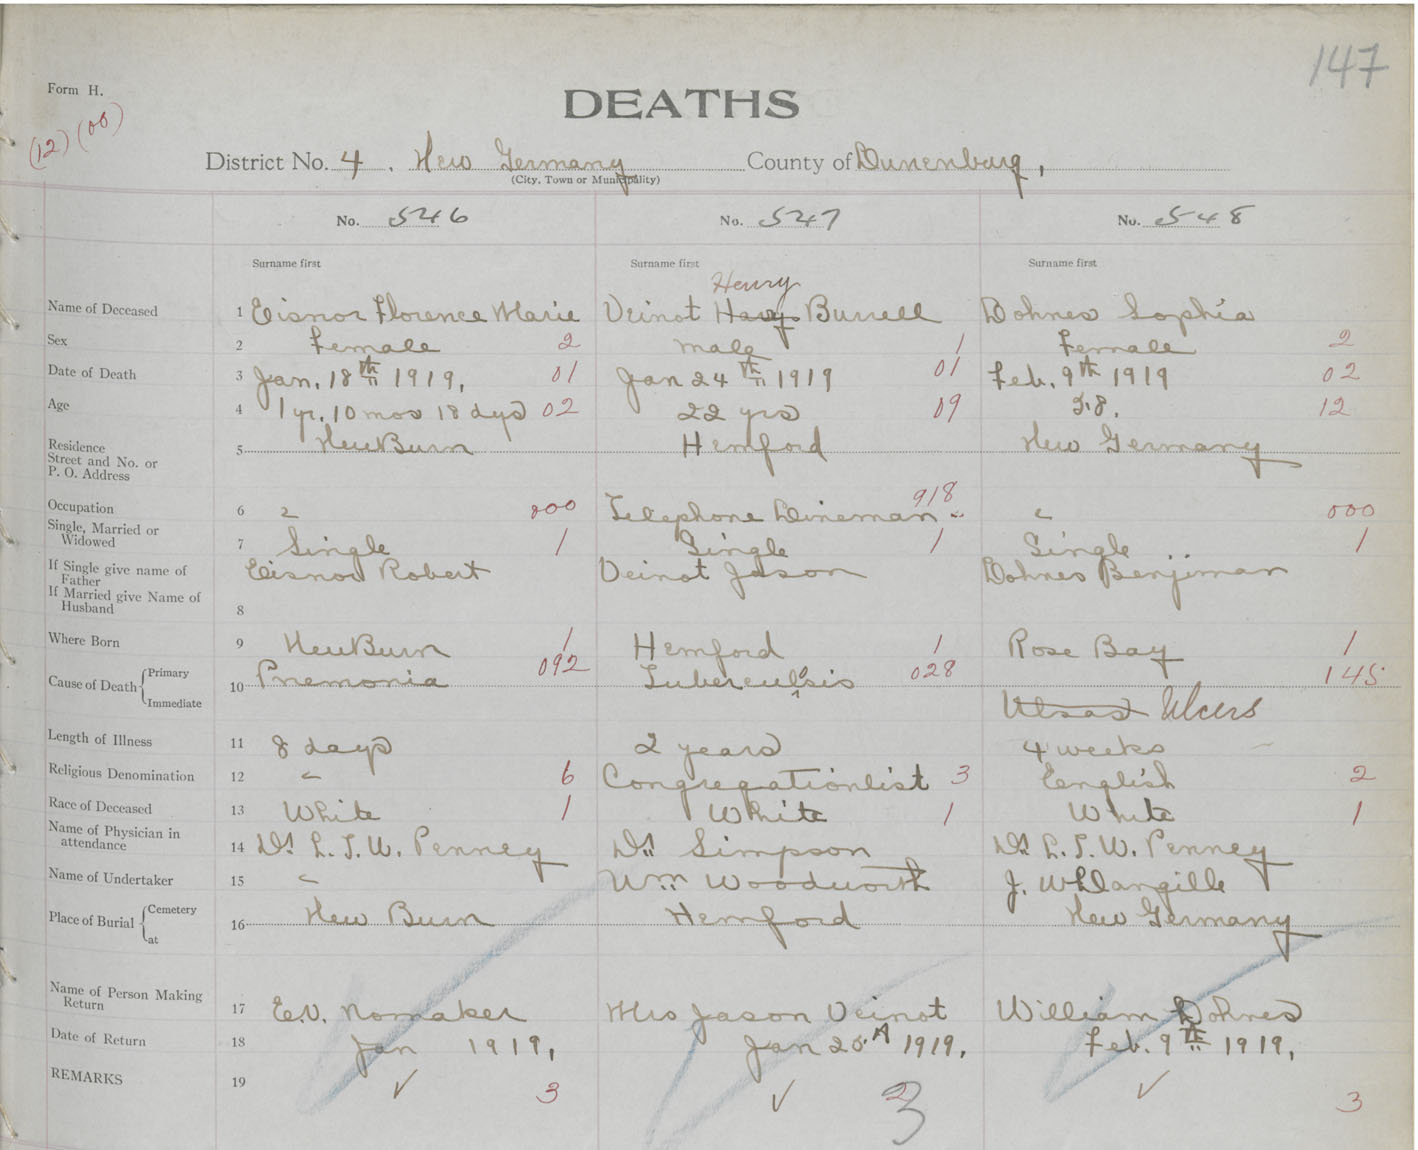 147
Form H.
DEATHS
(12) (00)
District No. 4. New Germany County of Lunenburg,
(City, Town or Municipality)
No. 546 No. 547 No. 548
Surname first Surname first Surname first
Henry
Name of Deceased 1 Eisnor Florence Marie Veinot Harry Burrell Dohnes Sophia
Sex 2 Female 2 male 1 Female 2
Date of Death 3 Jan. 18th 1919, 01 Jan 24th 1919 01 Feb. 9th 1919 02
Age 4 1 yr. 10 mos 18 dys 02 22 yrs 09 12
Residence
Street and No. or 5 NewBurn Hemford New Germany
P. O. Address
918
Occupation 6 000 Telephone Lineman 000
Single, Married or
Widowed 7 Single 1 Single 1 Single 1
If Single give name of
Father Eisnor Robert Veinot Jason Dohnes Benjiman
If Married give Name of
Husband 8
Where Born 9 NewBurn 1 Hemford 1 Rose Bay 1
Cause of Death Primary 10 Pnemonia 092 Tuberculosis 028 145
Immediate Ulcers
Length of Illness 11 8 days 2 years 4 weeks
Religious Denomination 12 " 6 Congregationlist 3 English 2
Race of Deceased 13 White 1 White 1 White 1
Name of Physician in
attendance 14 Dr. L. T. W. Penney Dr. Simpson Dr. L. T. W. Penney
Name of Undertaker 15 " Wm Woodworth J.
Place of Burial Cemetery 16 New Burn Hemford New Germany
at
Name of Person Making
Return 17 E.V. Nomaker Mrs Jason Veinot William Dohnes
Date of Return 18 Jan 1919, Jan 1919, Feb. 9th 1919,
REMARKS 19 ✓ 3 ✓ 3 ✓ 3